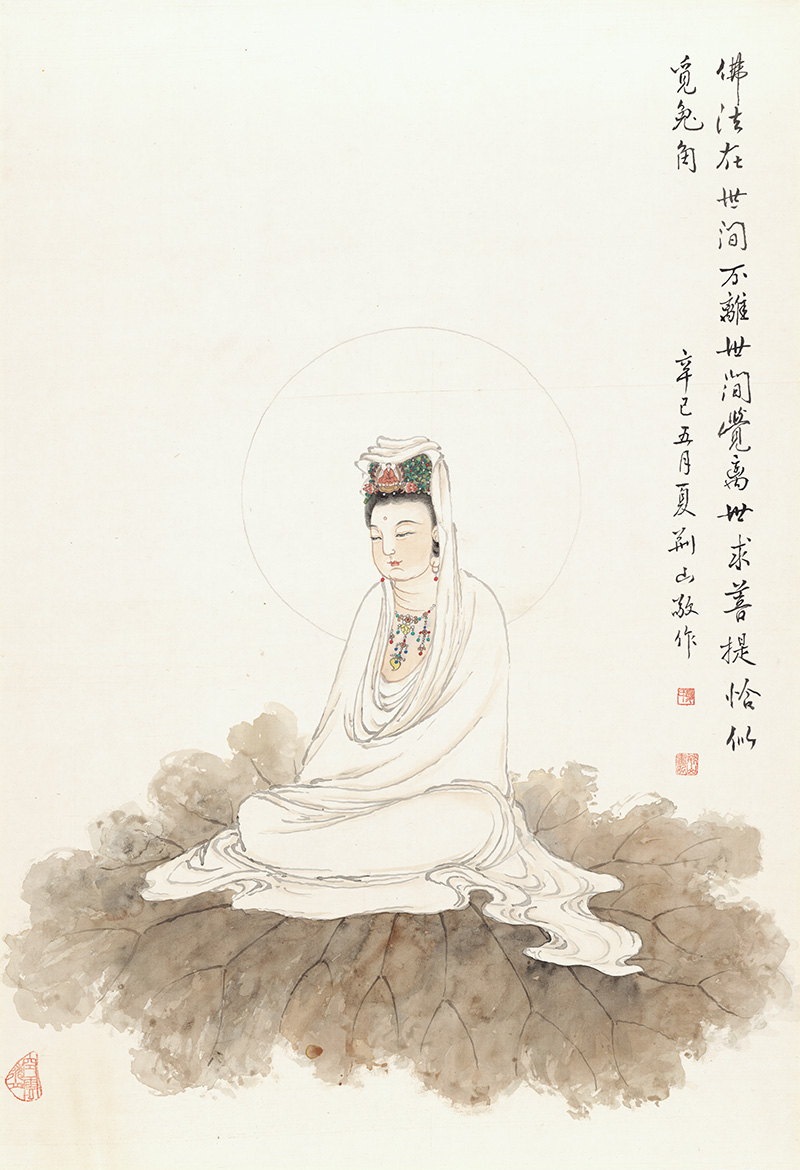 佛法在世間不離世間覺离世求菩提恰似
覓兔角
辛巳五月夏荆山敬作